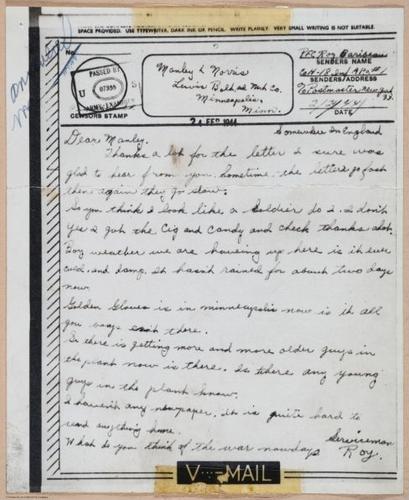 SPACE PROVIDED. USE TYPEWRITER, DARK INK OR PENCIL. WRITE PLAINLY. VERY SMALL WRITING IS NOT SUITABLE.
No.
PASSED BY
U
07355
ARMY EXAMINER
CENSORS STAMP
Manley L Norris
Lewis Mch Co.
Minneapolis,
Minn.
Pfc Roy
SENDERS NAME
Co H-18 Inf APO #1
SENDERS ADDRESS
℅ Postmaster New York
2/7/44
DATE
24 FEB 1944
Somewhere in England
Dear Manley.
Thanks a lot for the letter I sure was
glad to hear from you. Sometime the letters go fast
then again they go slow.
So you think I look like a Soldier do I. I don't
Yes I got the Cig and Candy and check thanks alot.
Boy weather we are haveing up here is it ever
cold, and damp. It hasn't rained for about two days
now.
Golden Gloves is in minneapolis now is it all
you boys there.
So there is getting more and more older guys in
the plant now is there. Is there any young
guys in the plant know.
I havent any newspaper, it is quite hard to
send anything home.
What do you think of the war nowdays
Serviceman
Roy.
V···—MAIL